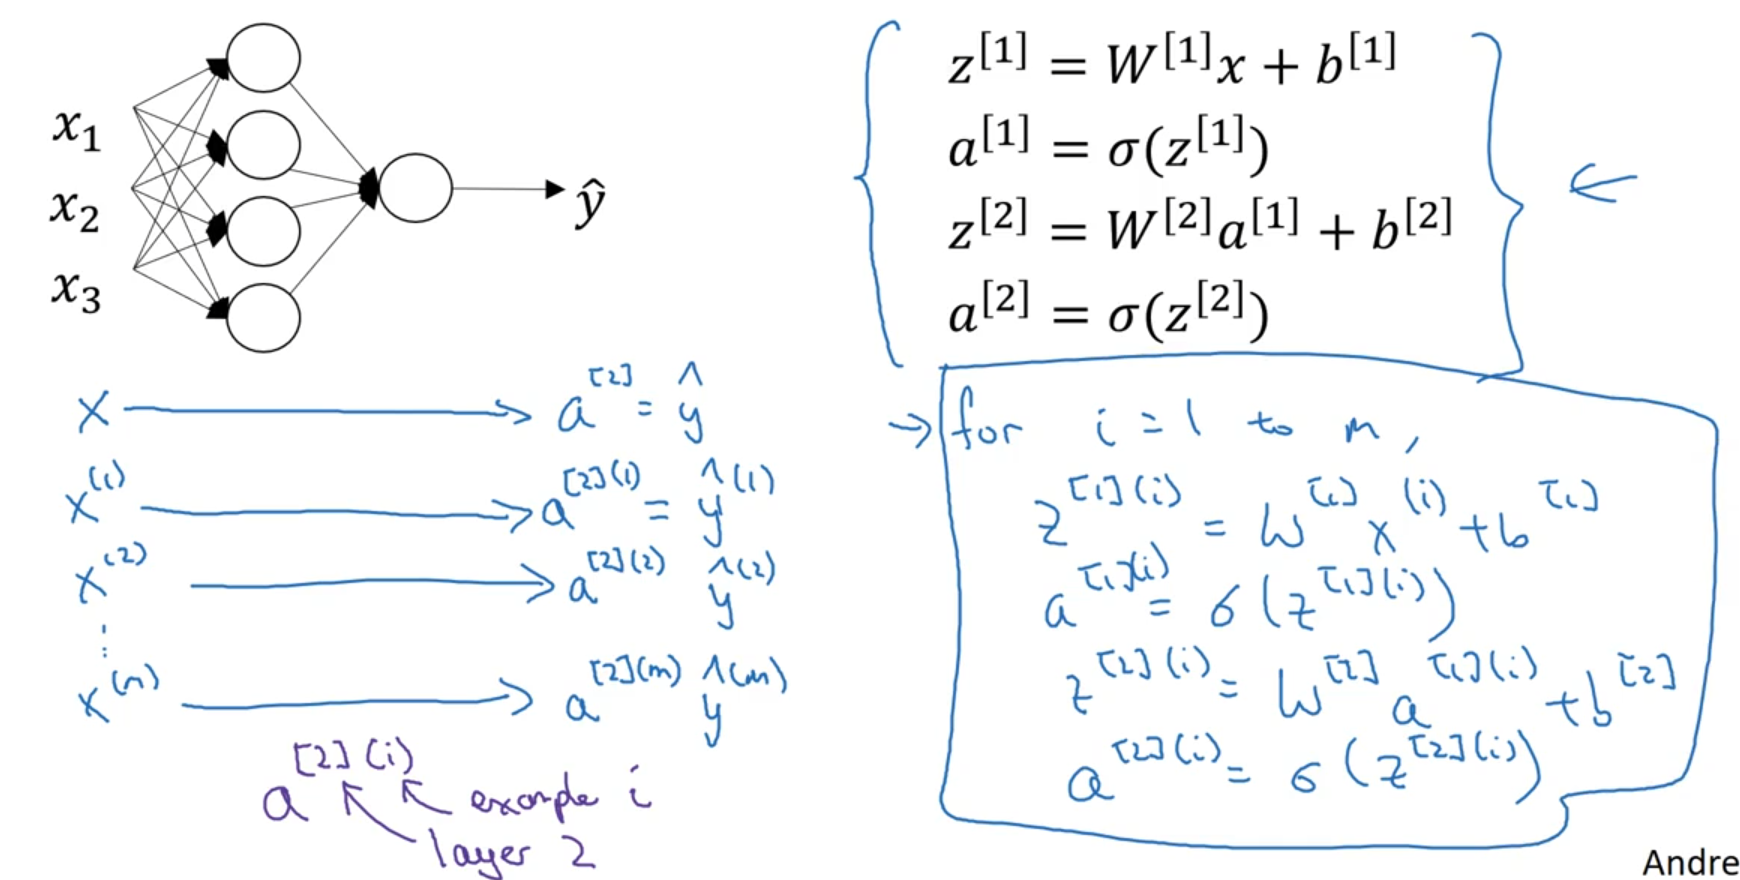 x₁
x₂
x₃
ŷ
z^[1] = W^[1]x + b^[1]
a^[1] = σ(z^[1])
z^[2] = W^[2]a^[1] + b^[2]
a^[2] = σ(z^[2])
x → a^[2] = ŷ
x^(1) → a^[2](1) = ŷ^(1)
x^(2) → a^[2](2) ŷ^(2)
⋮
x^(m) → a^[2](m) ŷ^(m)
a^[2](i)
example i
layer 2
→ for i = 1 to m,
z^[1](i) = W^[1] x^(i) + b^[1]
a^[1](i) = σ(z^[1](i))
z^[2](i) = W^[2] a^[1](i) + b^[2]
a^[2](i) = σ(z^[2](i))
Andre